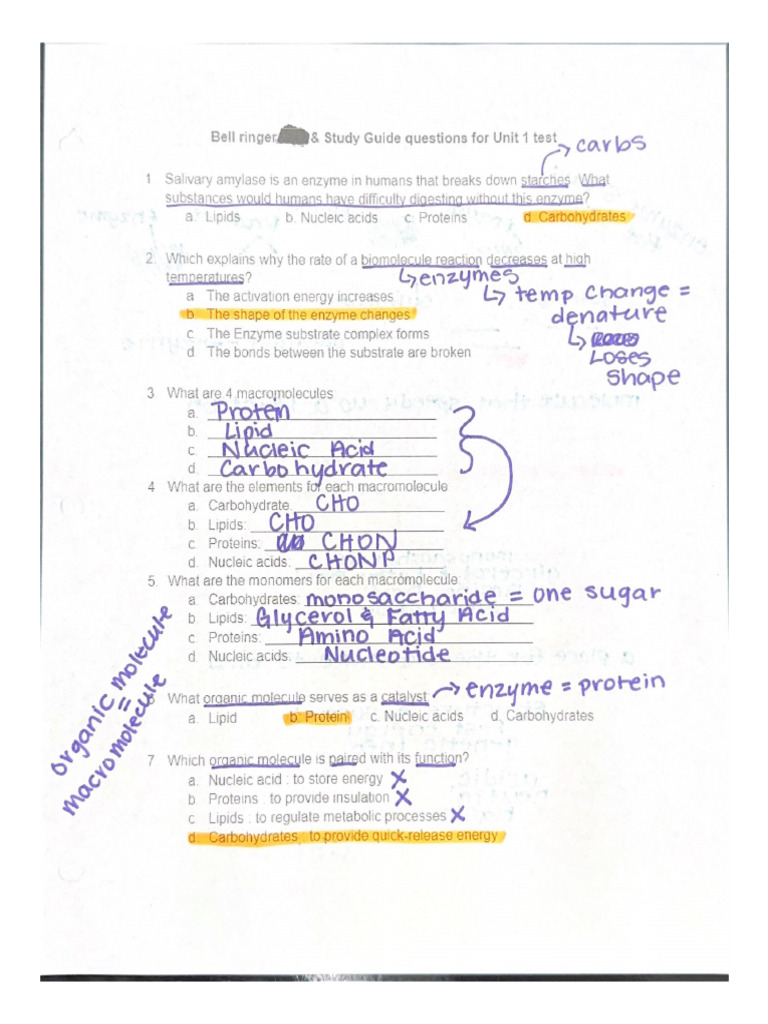 Bell ringer & Study Guide questions for Unit 1 test
→ carbs
1 Salivary amylase is an enzyme in humans that breaks down starches. What
substances would humans have difficulty digesting without this enzyme?
a. Lipids b. Nucleic acids c. Proteins d. Carbohydrates
2. Which explains why the rate of a biomolecule reaction decreases at high
temperatures?
↳ enzymes
↳ temp change =
denature
↳ Loses
shape
a The activation energy increases
b The shape of the enzyme changes
c The Enzyme substrate complex forms
d The bonds between the substrate are broken
3 What are 4 macromolecules
a. Protein
b. Lipid
c. Nucleic Acid
d. Carbohydrate
4 What are the elements for each macromolecule
a. Carbohydrate: CHO
b. Lipids: CHO
c. Proteins: CHON
d. Nucleic acids: CHONP
5. What are the monomers for each macromolecule
a. Carbohydrates: monosaccharide = one sugar
b. Lipids: Glycerol & Fatty Acid
c. Proteins: Amino Acid
d. Nucleic acids: Nucleotide
organic molecule
=
macromolecule
6 What organic molecule serves as a catalyst → enzyme = protein
a. Lipid b. Protein c. Nucleic acids d. Carbohydrates
7 Which organic molecule is paired with its function?
a. Nucleic acid : to store energy X
b. Proteins : to provide insulation X
c Lipids : to regulate metabolic processes X
d. Carbohydrates : to provide quick-release energy